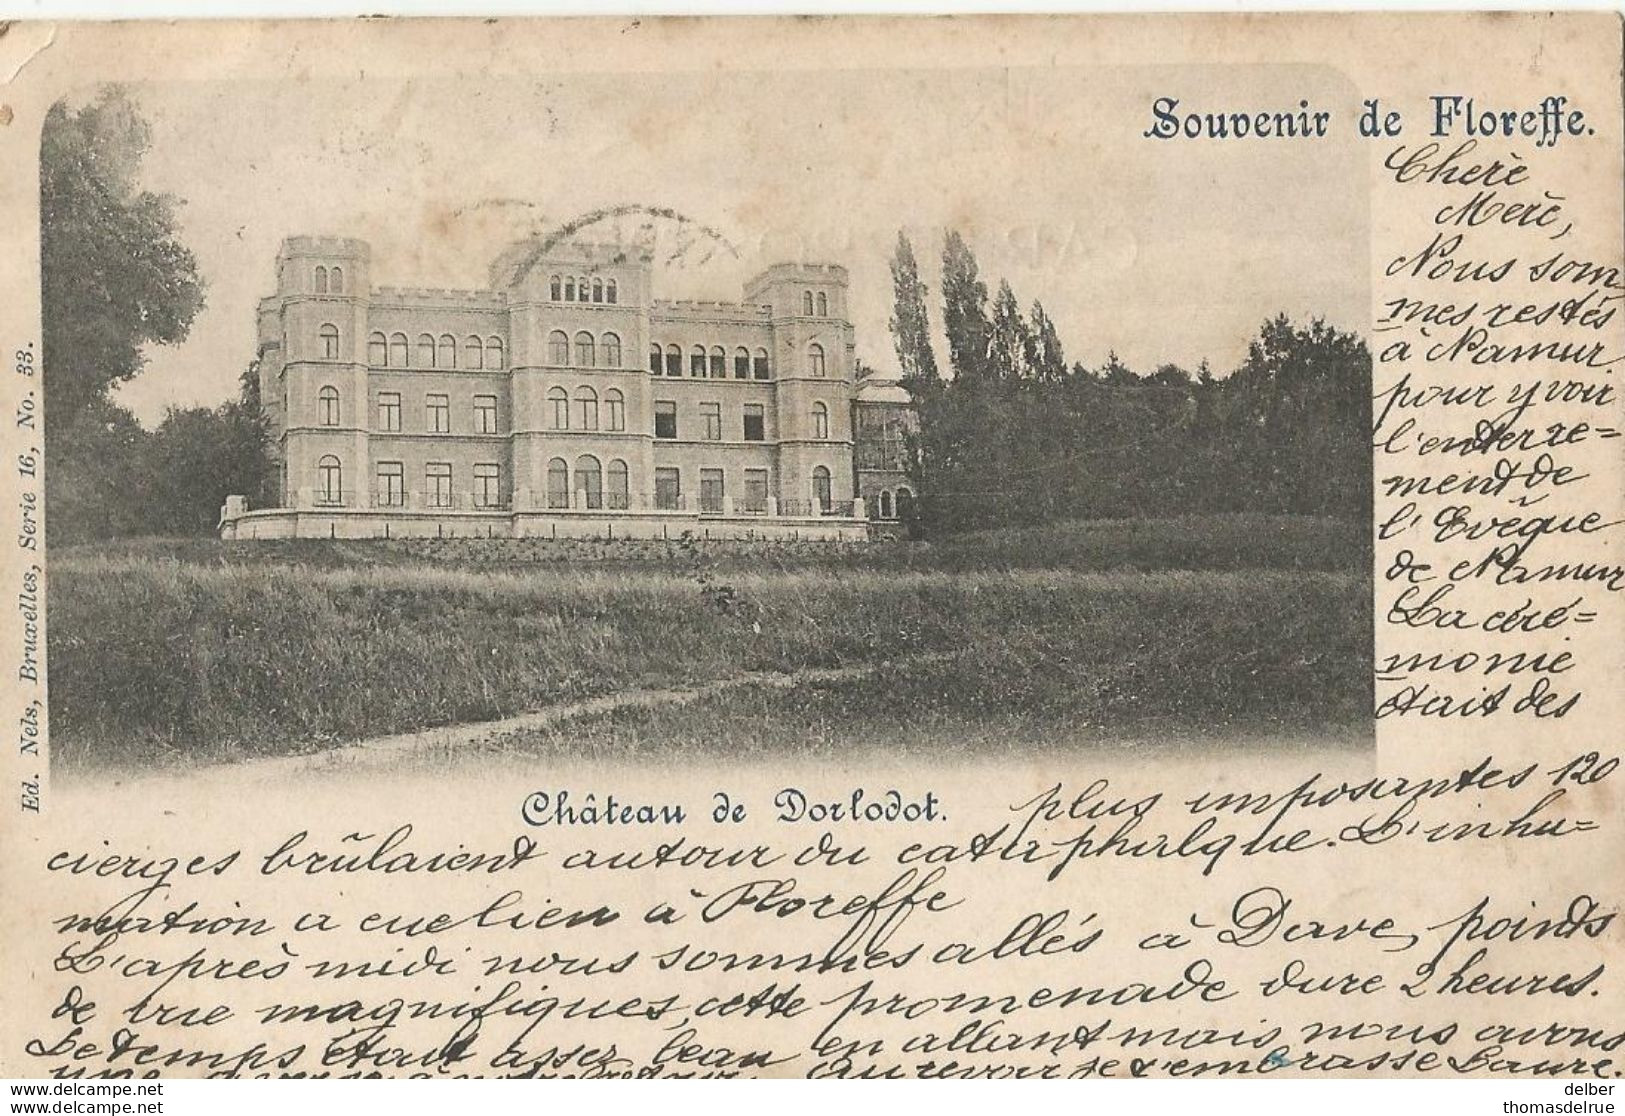 Souvenir de Floreffe.
Cherè
Merè,
Nous som-
mes restés
à Namur
pour y voir
l'enterre=
ment de
l'Evêque
de Namur
La céré=
monie
était des
plus imposantes 120
cierges brûlaient autour du cataphalque. L'inhu=
mation a eue lieu à Floreffe
L'après midi nous sommes allés à Dave, points
de vue magnifiques, cette promenade dure 2 heures.
Le temps était assez beau en allant mais nous avons
une averse à notre retour. Au revoir je t'embrasse Laure.
Château de Dorlodot.
Ed. Nels, Bruxelles, Serie 16, No. 33.
delber
thomasdelrue